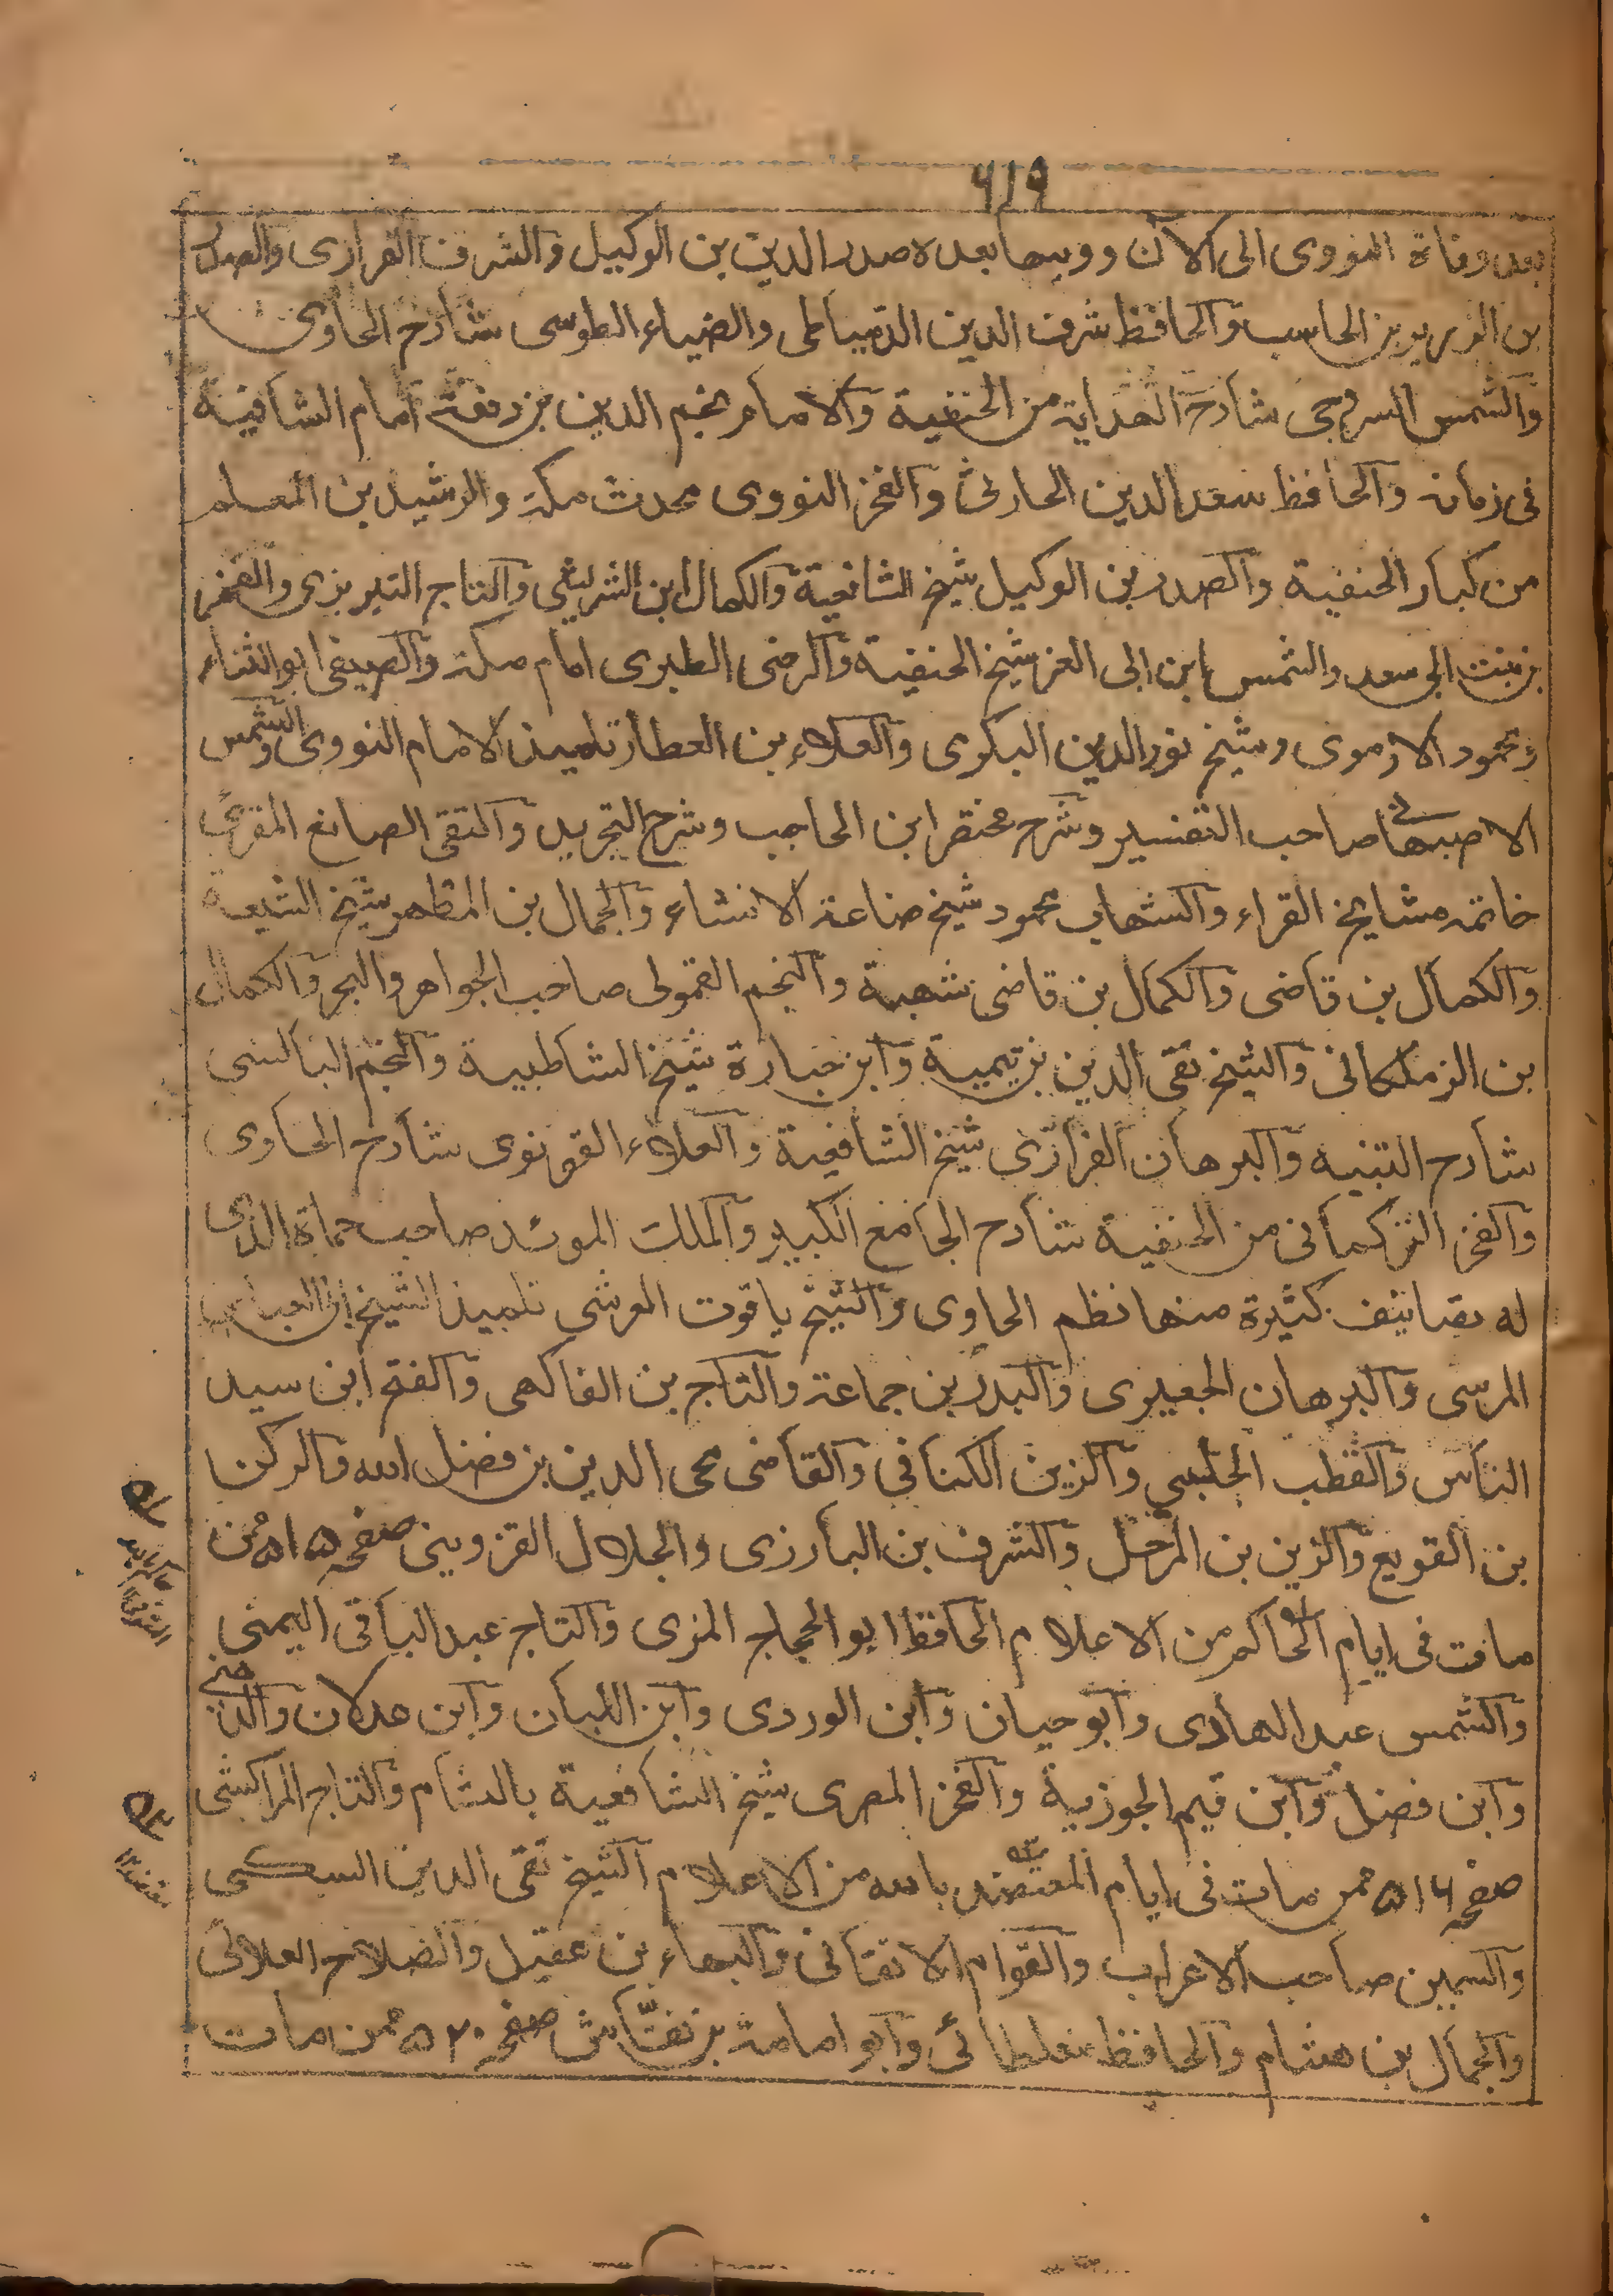 ٦١٩
بعد وفاة النووى الى الآن ووليها بعده صدر الدين بن الوكيل والشرف الفزارى والصدر
بن الزرير بن الحاسب والحافظ شرف الدين الدمياطى والضياء الطوسى شارح الحاوى
والشمس السروجى شارح الهداية من الحنفية والامام نجم الدين بن رفعة امام الشافعية
فى زمانه والحافظ سعد الدين الحارثى والفخر النووى محدث مكة والرشيد بن المعلم
من كبار الحنفية والصدر بن الوكيل شيخ الشافعية والكمال ابن الشريشى والتاج التبريزى والفخر
بن بنت ابى سعد والشمس ابن ابى العز شيخ الحنفية والرضى الطبرى امام مكة والصفى ابو الثناء
ومحمود الارموى وشيخ نور الدين البكرى والعلاء بن العطار تلميذ الامام النووى والشمس
الاصبهانى صاحب التفسير وشرح مختصر ابن الحاجب وشرح التجريد والتقى الصائغ المقرئ
خاتمه مشايخ القراء والشهاب محمود شيخ صناعة الانشاء والجمال بن المطهر شيخ الشيعة
والكمال بن قاضى والكمال بن قاضى شهبة والنجم القمولى صاحب الجواهر والبحر والكمال
بن الزملكانى والشيخ تقى الدين بن تيمية وابن جبارة شيخ الشاطبية والنجم البالسى
شارح التنبيه والبرهان الفزارى شيخ الشافعية والعلاء القونوى شارح الحاوى
والفخر التركمانى من الحنفية شارح الجامع الكبير والملك الموئد صاحب حماة الذى
له تصانيف كثيرة منها نظم الحاوى والشيخ ياقوت العرشى تلميذ الشيخ ابى العباس
المرسى والبرهان الجعبرى والبدر بن جماعة والتاج بن الفاكهى والفتح ابن سيد
الناس والقطب الحلبى والزين الكنانى والقاضى محى الدين بن فضل الله والركن
بن القويع والزين بن المرحل والشرف بن البارزى والجلال القزوينى صفحه ٥١٥ ممن
مات فى ايام الحاكم من الاعلام الحافظ ابو الحجاج المزى والتاج عبد الباقى اليمنى
والشمس عبد الهادى وابو حيان وابن الوردى وابن اللبان وابن عدلان والذهبى
وابن فضل وابن قيم الجوزية والفخر المصرى شيخ الشافعية بالشام والتاج المراكشى
صفحه ٥١٦ ممن مات فى ايام المعتضد بالله من الاعلام الشيخ تقى الدين السبكى
والسمين صاحب الاعراب والقوام الاتقانى والبهاء بن عقيل والصلاح العلائى
والجمال بن هشام والحافظ مغلطائى وابو امامة بن نقاش صفحه ٥٢٠ ممن مات